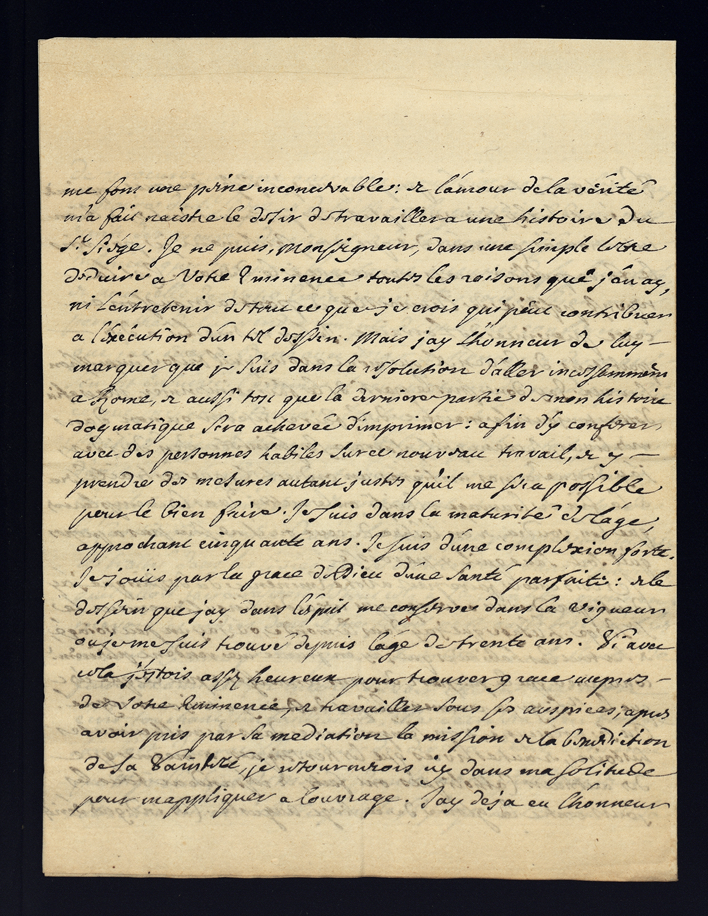 me font une peine inconcevable: & l'amour de la vérité
m'a fait naistre le desir de travailler a une histoire du
St. Siége. Je ne puis, Monseigneur, dans une simple lettre
déduire a Votre Eminence toutes les raisons que j'en ay,
ni l'entretenir de tout ce que je crois qui peut contribuer
a l'exécution d'un tel dessein. Mais j'ay l'honneur de luy
marquer que je suis dans la résolution d'aller incessamment
a Rome, & aussi tost que la derniere partie de mon histoire
dogmatique sera achevée d'imprimer: afin d'y conférer
avec des personnes habiles sur ce nouveau travail, & y
prendre des mesures autant justes qu'il me sera possible
pour le bien faire. Je suis dans la maturité de l'âge,
approchant cinquante ans. Je suis d'une complexion forte.
Je joüis par la grace de Dieu d'une santé parfaite: & le
dessein que j'ay dans l'esprit me conserve dans la vigueur
ou je me suis trouvé depuis l'âge de trente ans. Si avec
cela j'estois assez heureux pour trouver grace aupres
de Votre Eminence, & travailler sous ses auspices, apres
avoir pris par sa mediation la mission & la bénédiction
de sa Sainteté, je retournerois icy dans ma solitude
pour m'appliquer a l'ouvrage. J'ay deja eu l'honneur